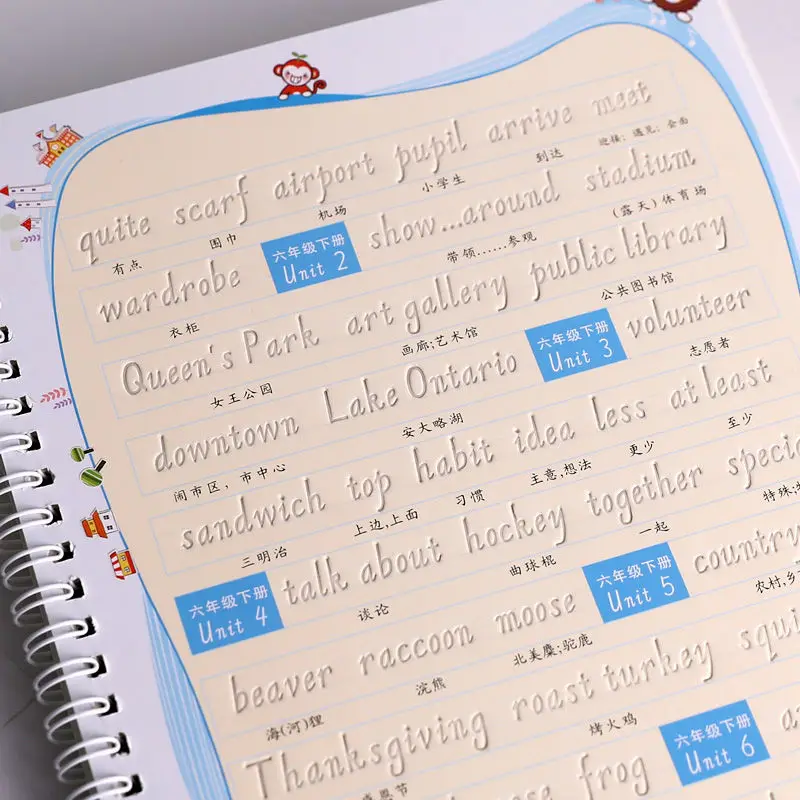 quite scarf airport pupil arrive meet
有点 围巾 机场 小学生 到达 迎接；遇见；会面
wardrobe 六年级下册 Unit 2 show...around stadium
衣柜 带领……参观 (露天)体育场
Queen's Park art gallery public library
女王公园 画廊;艺术馆 公共图书馆
downtown Lake Ontario 六年级下册 Unit 3 volunteer
闹市区，市中心 安大略湖 志愿者
sandwich top habit idea less at least
三明治 上边,上面 习惯 主意,想法 更少 至少
六年级下册 Unit 4 talk about hockey together
谈论 曲球棍 一起 特殊;
beaver raccoon moose 六年级下册 Unit 5
海(河)狸 浣熊 北美麋;驼鹿 农村,
Thanksgiving roast turkey
烤火鸡
frog 六年级下册 Unit 6